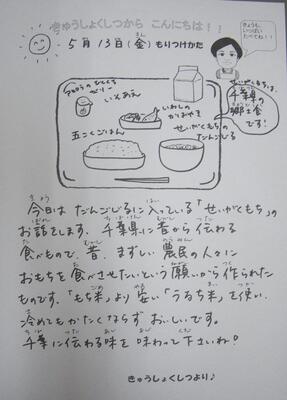 きゅうしょくしつから こんにちは！！
きょうも、
いっぱい
たべてね！！
5月13日(金) もりつけかた
ひとくち
ゼリー
いそあえ
いわしの
かばやき
せいがくもちの
だんごじる
五こくごはん
せいがくもちは、
千葉県の
郷土食
です！
今日は だんごじるに 入っている「せいがくもち」の
お話をします。千葉県に昔から 伝わる
食べもので、昔、まずしい 農民の人々に
おもちを 食べさせたいという 願いから 作られた
ものです。「もち米」より 安い「うるち米」を使い、
冷めてもかたくならず おいしいです。
千葉に伝わる味を 味わって下さいね！
きゅうしょくしつより♪